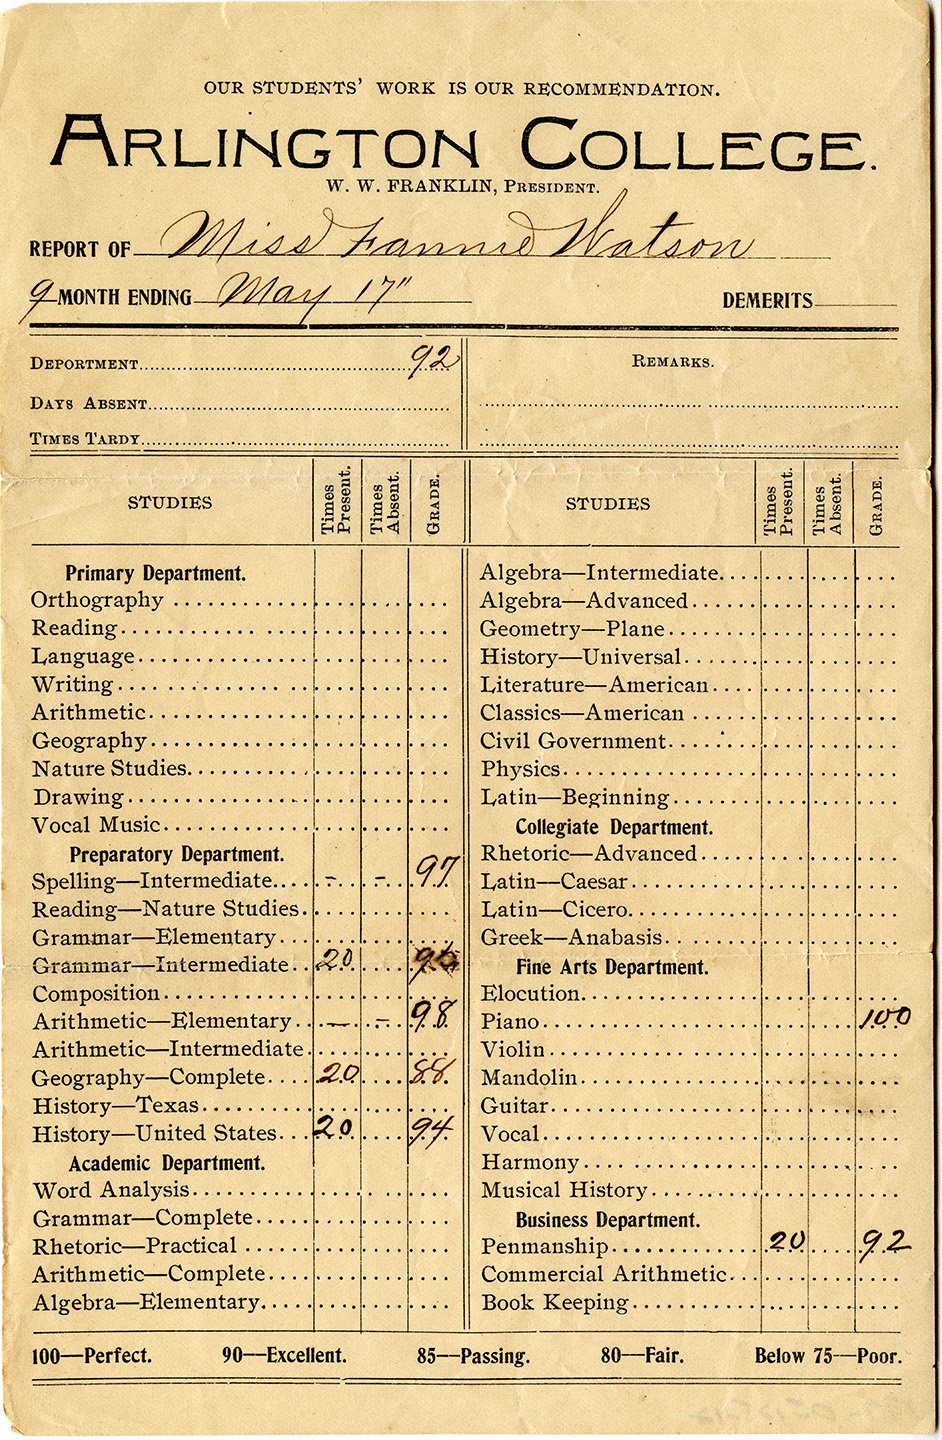 OUR STUDENTS' WORK IS OUR RECOMMENDATION.
ARLINGTON COLLEGE.
W. W. FRANKLIN, PRESIDENT.
REPORT OF Miss Fannie Watson
9 MONTH ENDING May 17"
DEMERITS
DEPORTMENT 92
DAYS ABSENT
TIMES TARDY
REMARKS.
STUDIES Times Present. Times Absent. GRADE.
Primary Department.
Orthography
Reading
Language
Writing
Arithmetic
Geography
Nature Studies
Drawing
Vocal Music
Preparatory Department.
Spelling—Intermediate - - 97
Reading—Nature Studies
Grammar—Elementary
Grammar—Intermediate 20
Composition
Arithmetic—Elementary - - 98
Arithmetic—Intermediate
Geography—Complete 20 88
History—Texas
History—United States 20 94
Academic Department.
Word Analysis
Grammar—Complete
Rhetoric—Practical
Arithmetic—Complete
Algebra—Elementary
STUDIES Times Present. Times Absent. GRADE.
Algebra—Intermediate
Algebra—Advanced
Geometry—Plane
History—Universal
Literature—American
Classics—American
Civil Government
Physics
Latin—Beginning
Collegiate Department.
Rhetoric—Advanced
Latin—Caesar
Latin—Cicero
Greek—Anabasis
Fine Arts Department.
Elocution
Piano 100
Violin
Mandolin
Guitar
Vocal
Harmony
Musical History
Business Department.
Penmanship 20 92
Commercial Arithmetic
Book Keeping
100—Perfect. 90—Excellent. 85—Passing. 80—Fair. Below 75—Poor.